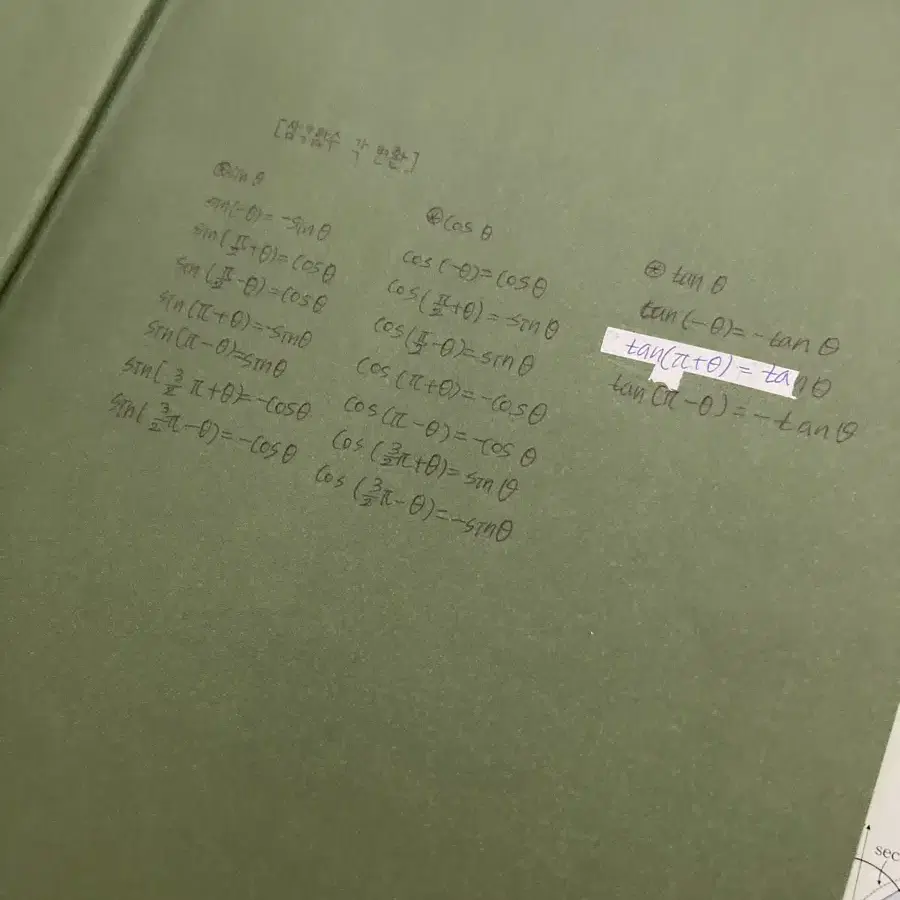 [삼각함수 각 변환]
⊛sin θ
sin(-θ)= -sin θ
sin(π/2+θ)=cosθ
sin(π/2-θ)=cosθ
sin(π+θ)=-sinθ
sin(π-θ)=sinθ
sin(3/2π+θ)=-cosθ
sin(3/2π-θ)=-cosθ
⊛cos θ
cos(-θ)=cosθ
cos(π/2+θ)=-sinθ
cos(π/2-θ)=sinθ
cos(π+θ)=-cosθ
cos(π-θ)=-cosθ
cos(3/2π+θ)=sinθ
cos(3/2π-θ)=-sinθ
⊛ tan θ
tan(-θ)=-tanθ
tan(π+θ)=tanθ
tan(π-θ)=-tanθ
sec